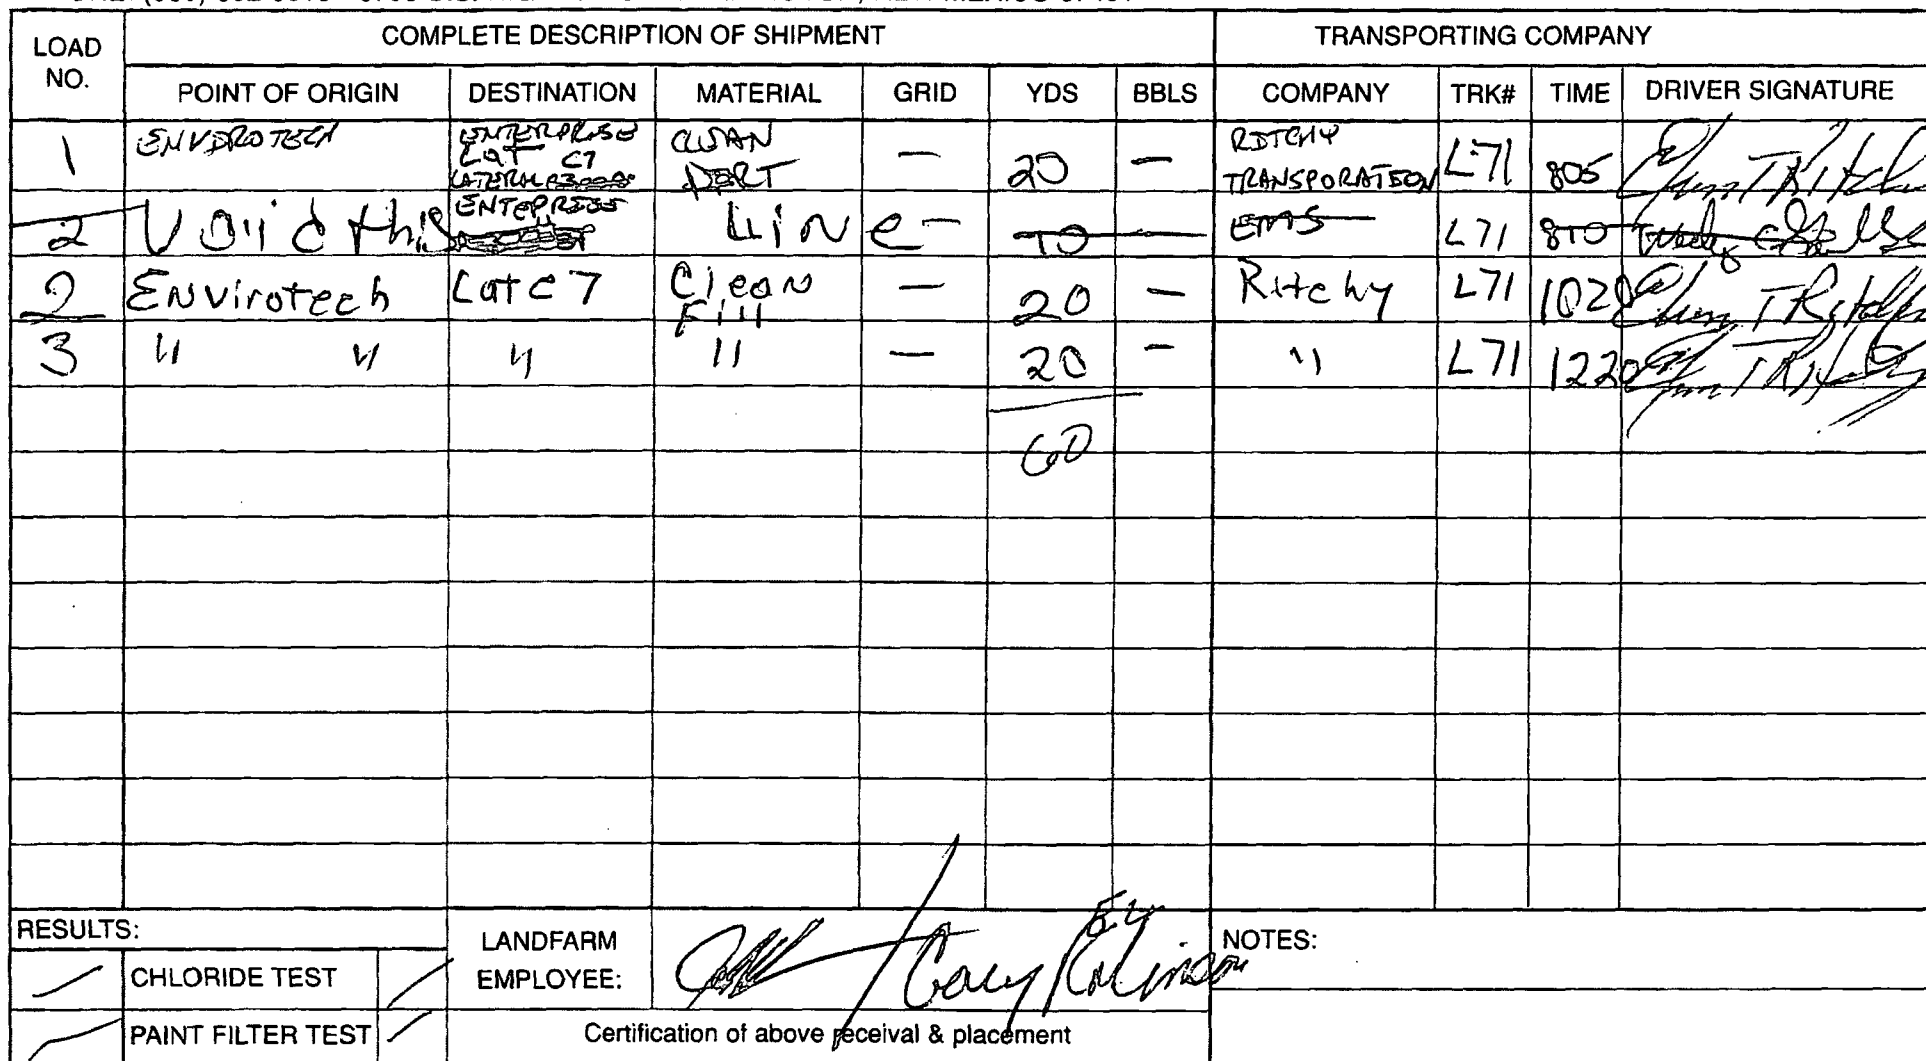 COMPLETE DESCRIPTION OF SHIPMENT TRANSPORTING COMPANY
LOAD NO. POINT OF ORIGIN DESTINATION MATERIAL GRID YDS BBLS COMPANY TRK# TIME DRIVER SIGNATURE
1 ENVIROTECH ENTERPRISE LAT C7 LATERAL CLEAN DIRT — 20 — RITCHY TRANSPORATION L71 805
2 Void this ENTEPRISE Line - 10 — EMS L71 810
2 Envirotech Lat C7 Clean Fill — 20 — Ritchy L71 1020
3 " " " " — 20 - " L71 1220
60
RESULTS:
CHLORIDE TEST
PAINT FILTER TEST
LANDFARM
EMPLOYEE: Gary Robinson
Certification of above receival & placement
NOTES: